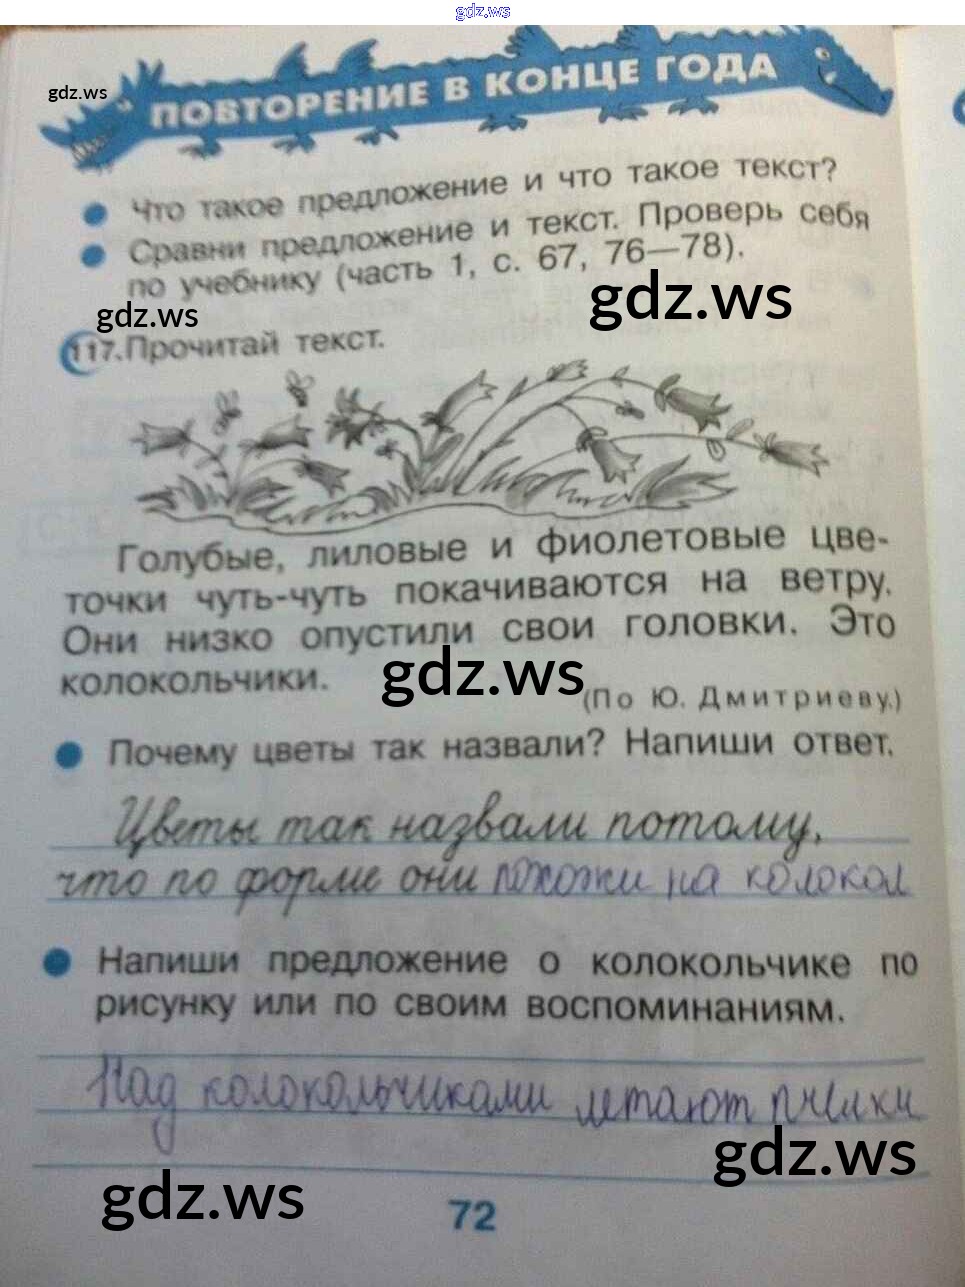 gdz.ws
gdz.ws
ПОВТОРЕНИЕ В КОНЦЕ ГОДА
Что такое предложение и что такое текст?
Сравни предложение и текст. Проверь себя
по учебнику (часть 1, с. 67, 76—78).
gdz.ws
gdz.ws
117. Прочитай текст.
Голубые, лиловые и фиолетовые цве-
точки чуть-чуть покачиваются на ветру.
Они низко опустили свои головки. Это
колокольчики.
gdz.ws
(По Ю. Дмитриеву.)
Почему цветы так назвали? Напиши ответ.
Цветы так назвали потому,
что по форме они похожи на колокол
Напиши предложение о колокольчике по
рисунку или по своим воспоминаниям.
Над колокольчиками летают пчёлки
gdz.ws
gdz.ws
72